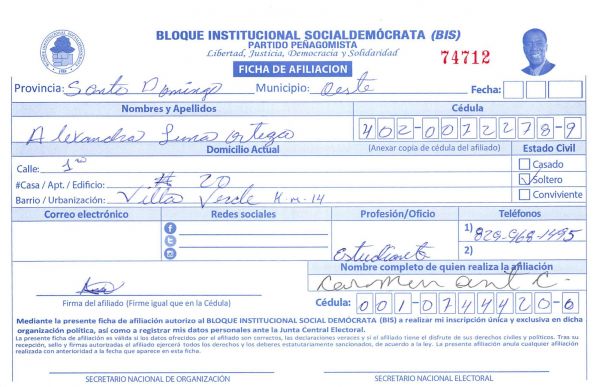 BLOQUE INSTITUCIONAL SOCIALDEMÓCRATA (BIS)
PARTIDO PEÑAGOMISTA
Libertad, Justicia, Democracia y Solidaridad
74712
FICHA DE AFILIACION
Provincia: Santo Domingo Municipio: Oeste Fecha:
Nombres y Apellidos Cédula
Alexandra Luna Ortega 402-0072278-9
Domicilio Actual (Anexar copia de cédula del afiliado) Estado Civil
Calle: 1ra Casado
#Casa / Apt. / Edificio: # 20 Soltero
Barrio / Urbanización: Villa Verde Km-14 Conviviente
Correo electrónico Redes sociales Profesión/Oficio Teléfonos
1) 829-968-1495
Estudiante 2)
Nombre completo de quien realiza la afiliación
Carmen ant C.
Firma del afiliado (Firme igual que en la Cédula) Cédula: 001-0744420-6
Mediante la presente ficha de afiliación autorizo al BLOQUE INSTITUCIONAL SOCIAL DEMÓCRATA (BIS) a realizar mi inscripción única y exclusiva en dicha
organización política, así como a registrar mis datos personales ante la Junta Central Electoral.
La presente ficha de afiliación es válida si los datos ofrecidos por el afiliado son correctos, las declaraciones veraces y si el afiliado tiene el disfrute de sus derechos civiles y políticos. Tras su
recepción, sello y firmas autorizadas el afiliado ejercerá todos los derechos y los deberes estatutariamente sancionados, de acuerdo a la ley. La presente afiliación anula cualquier afiliación
realizada con anterioridad a la fecha que aparece en esta ficha.
SECRETARIO NACIONAL DE ORGANIZACIÓN SECRETARIO NACIONAL ELECTORAL